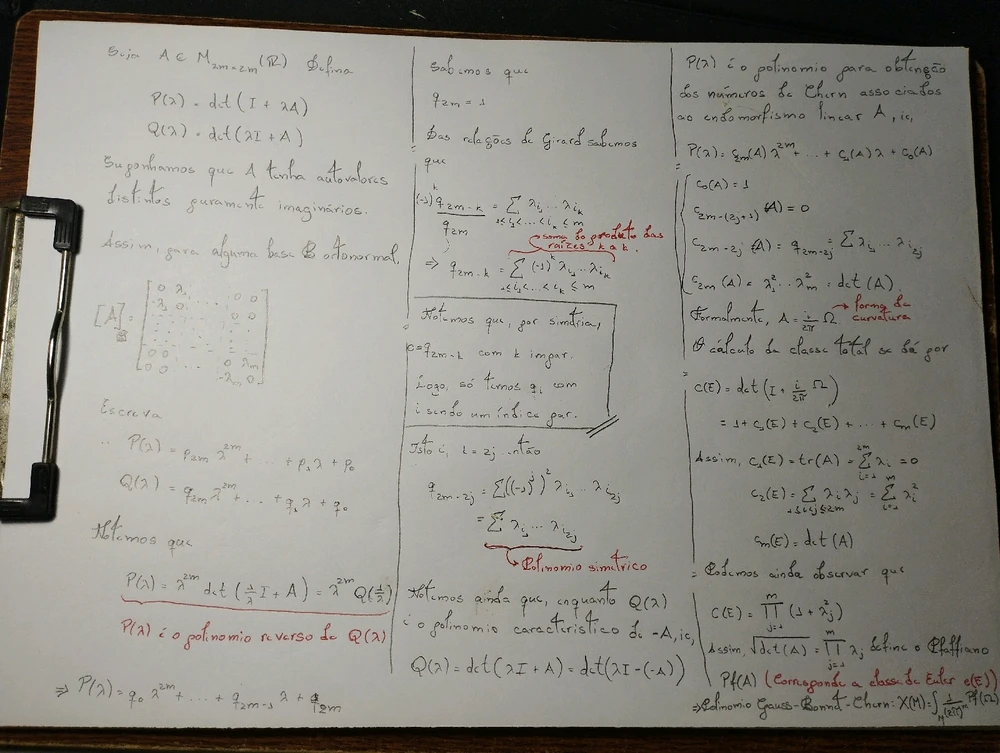 Seja A ∈ M₂ₘₓ₂ₘ(ℝ) Defina
P(λ) = det(I + λA)
Q(λ) = det(λI + A)
Suponhamos que A tenha autovalores
distintos puramente imaginários.
Assim, para alguma base B ortonormal,
[A]_B = [ 0 λ₁ ... 0 0
-λ₁ 0 ... 0 0
0 0 ... 0 λₘ
0 0 ... -λₘ 0 ]
Escreva
P(λ) = p₂ₘ λ²ᵐ + ... + p₁ λ + p₀
Q(λ) = q₂ₘ λ²ᵐ + ... + q₁ λ + q₀
Notemos que
P(λ) = λ²ᵐ det(1/λ I + A) = λ²ᵐ Q(1/λ)
P(λ) é o polinomio reverso de Q(λ)
⇒ P(λ) = q₀ λ²ᵐ + ... + q₂ₘ₋₁ λ + q₂ₘ
Sabemos que
q₂ₘ = 1
Das relações de Girard sabemos
que
(-1)ᵏ q₂ₘ₋ₖ / q₂ₘ = ∑ λᵢ₁ ... λᵢₖ
1≤i₁<...<iₖ≤m
soma do produto das
raízes k a k
⇒ q₂ₘ₋ₖ = ∑ (-1)ᵏ λᵢ₁ ... λᵢₖ
1≤i₁<...<iₖ≤m
Notemos que, por simetria,
0 = q₂ₘ₋ₖ com k impar.
Logo, só temos qᵢ com
i sendo um índice par.
Isto é, k = 2j então
q₂ₘ₋₂ⱼ = ∑((-1)ʲ)² λᵢ₁ ... λᵢ₂ⱼ
= ∑ λᵢ₁ ... λᵢ₂ⱼ
↳ Polinomio simetrico
Notemos ainda que, enquanto Q(λ)
é o polinomio caracteristico de -A, ie,
Q(λ) = det(λI + A) = det(λI - (-A))
P(λ) é o polinomio para obtenção
dos números de Chern associados
ao endomorfismo linear A, ie,
P(λ) = c₂ₘ(A) λ²ᵐ + ... + c₁(A) λ + c₀(A)
c₀(A) = 1
c₂ₘ₋(₂ⱼ₊₁)(A) = 0
c₂ₘ₋₂ⱼ(A) = q₂ₘ₋₂ⱼ = ∑ λᵢ₁ ... λᵢ₂ⱼ
c₂ₘ(A) = λ₁² ... λₘ² = det(A)
Formalmente, A = i/2π Ω → forma de
curvatura
O cálculo da classe total se dá por
C(E) = det(I + i/2π Ω)
= 1 + c₁(E) + c₂(E) + ... + cₘ(E)
Assim, c₁(E) = tr(A) = ∑ᵢ₌₁²ᵐ λᵢ = 0
c₂(E) = ∑ λᵢ λⱼ = ∑ᵢ₌₁ᵐ λᵢ²
1≤i<j≤2m
cₘ(E) = det(A)
Podemos ainda observar que
C(E) = ∏ⱼ₌₁ᵐ (1 + λⱼ²)
Assim, √det(A) = ∏ⱼ₌₁ᵐ λⱼ define o Pfaffiano
Pf(A) (Corresponde a classe de Euler e(E))
⇒ Polinomio Gauss-Bonnet-Chern: χ(M) = ∫_M 1/(2π)ᵐ Pf(Ω)